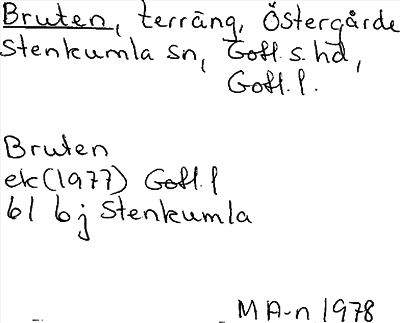 Bruten, terräng, Östergårde
Stenkumla sn, Gotl. s. hd,
Gotl. l.
Bruten
ek (1977) Gotl. l
bl bj Stenkumla
MA-n 1978